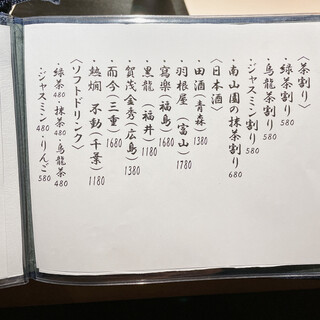 〈茶割り〉
・緑茶割り 580
・烏龍茶割り 580
・ジャスミン割り 580
・南山園の抹茶割り 680
〈日本酒〉
・田酒(青森) 1380
・羽根屋(富山) 1780
・寫樂(福島) 1680
・黒龍(福井) 1180
・賀茂金秀(広島) 1380
・而今(三重) 1680
・熱燗 不動(千葉) 1180
〈ソフトドリンク〉
・緑茶 480 ・抹茶 480 ・烏龍茶 480
・ジャスミン 480 ・りんご 580